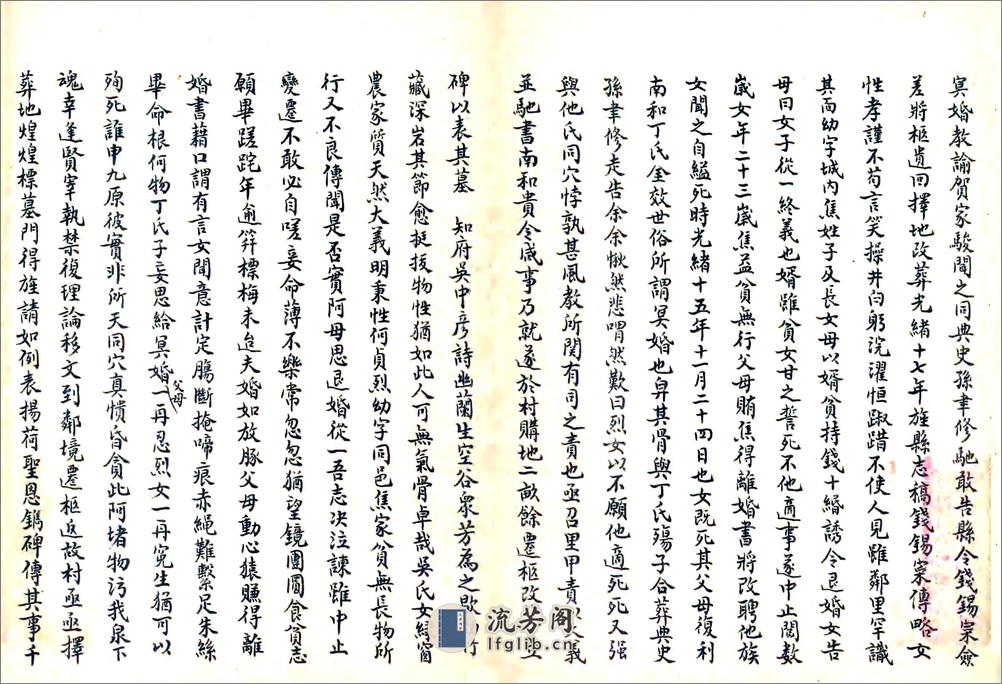 冥婚教諭賀家駿聞之同典史孫聿修馳敢告縣令錢錫寀僉
差將柩遺回擇地改葬光緒十七年旌縣志稿錢錫寀傳略女
性孝謹不苟言笑操井臼躬浣濯恒踧踖不使人見雖鄰里罕識
其面幼字城內焦姓子及長女母以婿貧持錢十緡誘令退婚女告
母曰女子從一終義也婿雖貧女甘之誓死不他適事遂中止閱數
嵗女年二十三嵗焦益貧無行父母賄焦得離婚書將改聘他族
女聞之自縊死時光緒十五年十一月二十四日也女既死其父母復利
南和丁氏金效世俗所謂冥婚也舁其骨與丁氏殤子合葬典史
孫聿修走告余余愀然悲喟然歎曰烈女以不願他適死死又强
與他氏同穴悖孰甚風教所関有司之責也亟召里甲責以大義
並馳書南和貴令咸事乃就遂於村購地二畝餘遷柩改葬立
碑以表其墓 知府吳中彥詩幽蘭生空谷衆芳為之歇竹
藏深岩其節愈挺拔物性猶如此人可無氣骨卓哉吳氏女綺窗
農家質天然大義明秉性何貞烈幼字同邑焦家貧無長物所
行又不良傳聞是否實阿母思退婚從一吾志决泣諫雖中止
變遷不敢必自嗟妾命薄不樂常忽忽猶望鏡團圓食貧志
願畢蹉跎年逾笄標梅未迨夫婿如放豚父母動心猿賺得離
婚書藉口謂有言女聞意計定腸斷掩啼痕赤繩難繫足朱絲
畢命根何物丁氏子妄思給冥婚父母一再忍烈女一再寃生猶可以
殉死誰申九原彼實非所天同穴真憒昏貪此阿堵物污我泉下
魂幸逢賢宰執禁復理論移文到鄰境遷柩返故村亟亟擇
葬地煌煌標墓門得旌請如例表揚荷聖恩鐫碑傳其事千
流芳阁
lfglib.cn